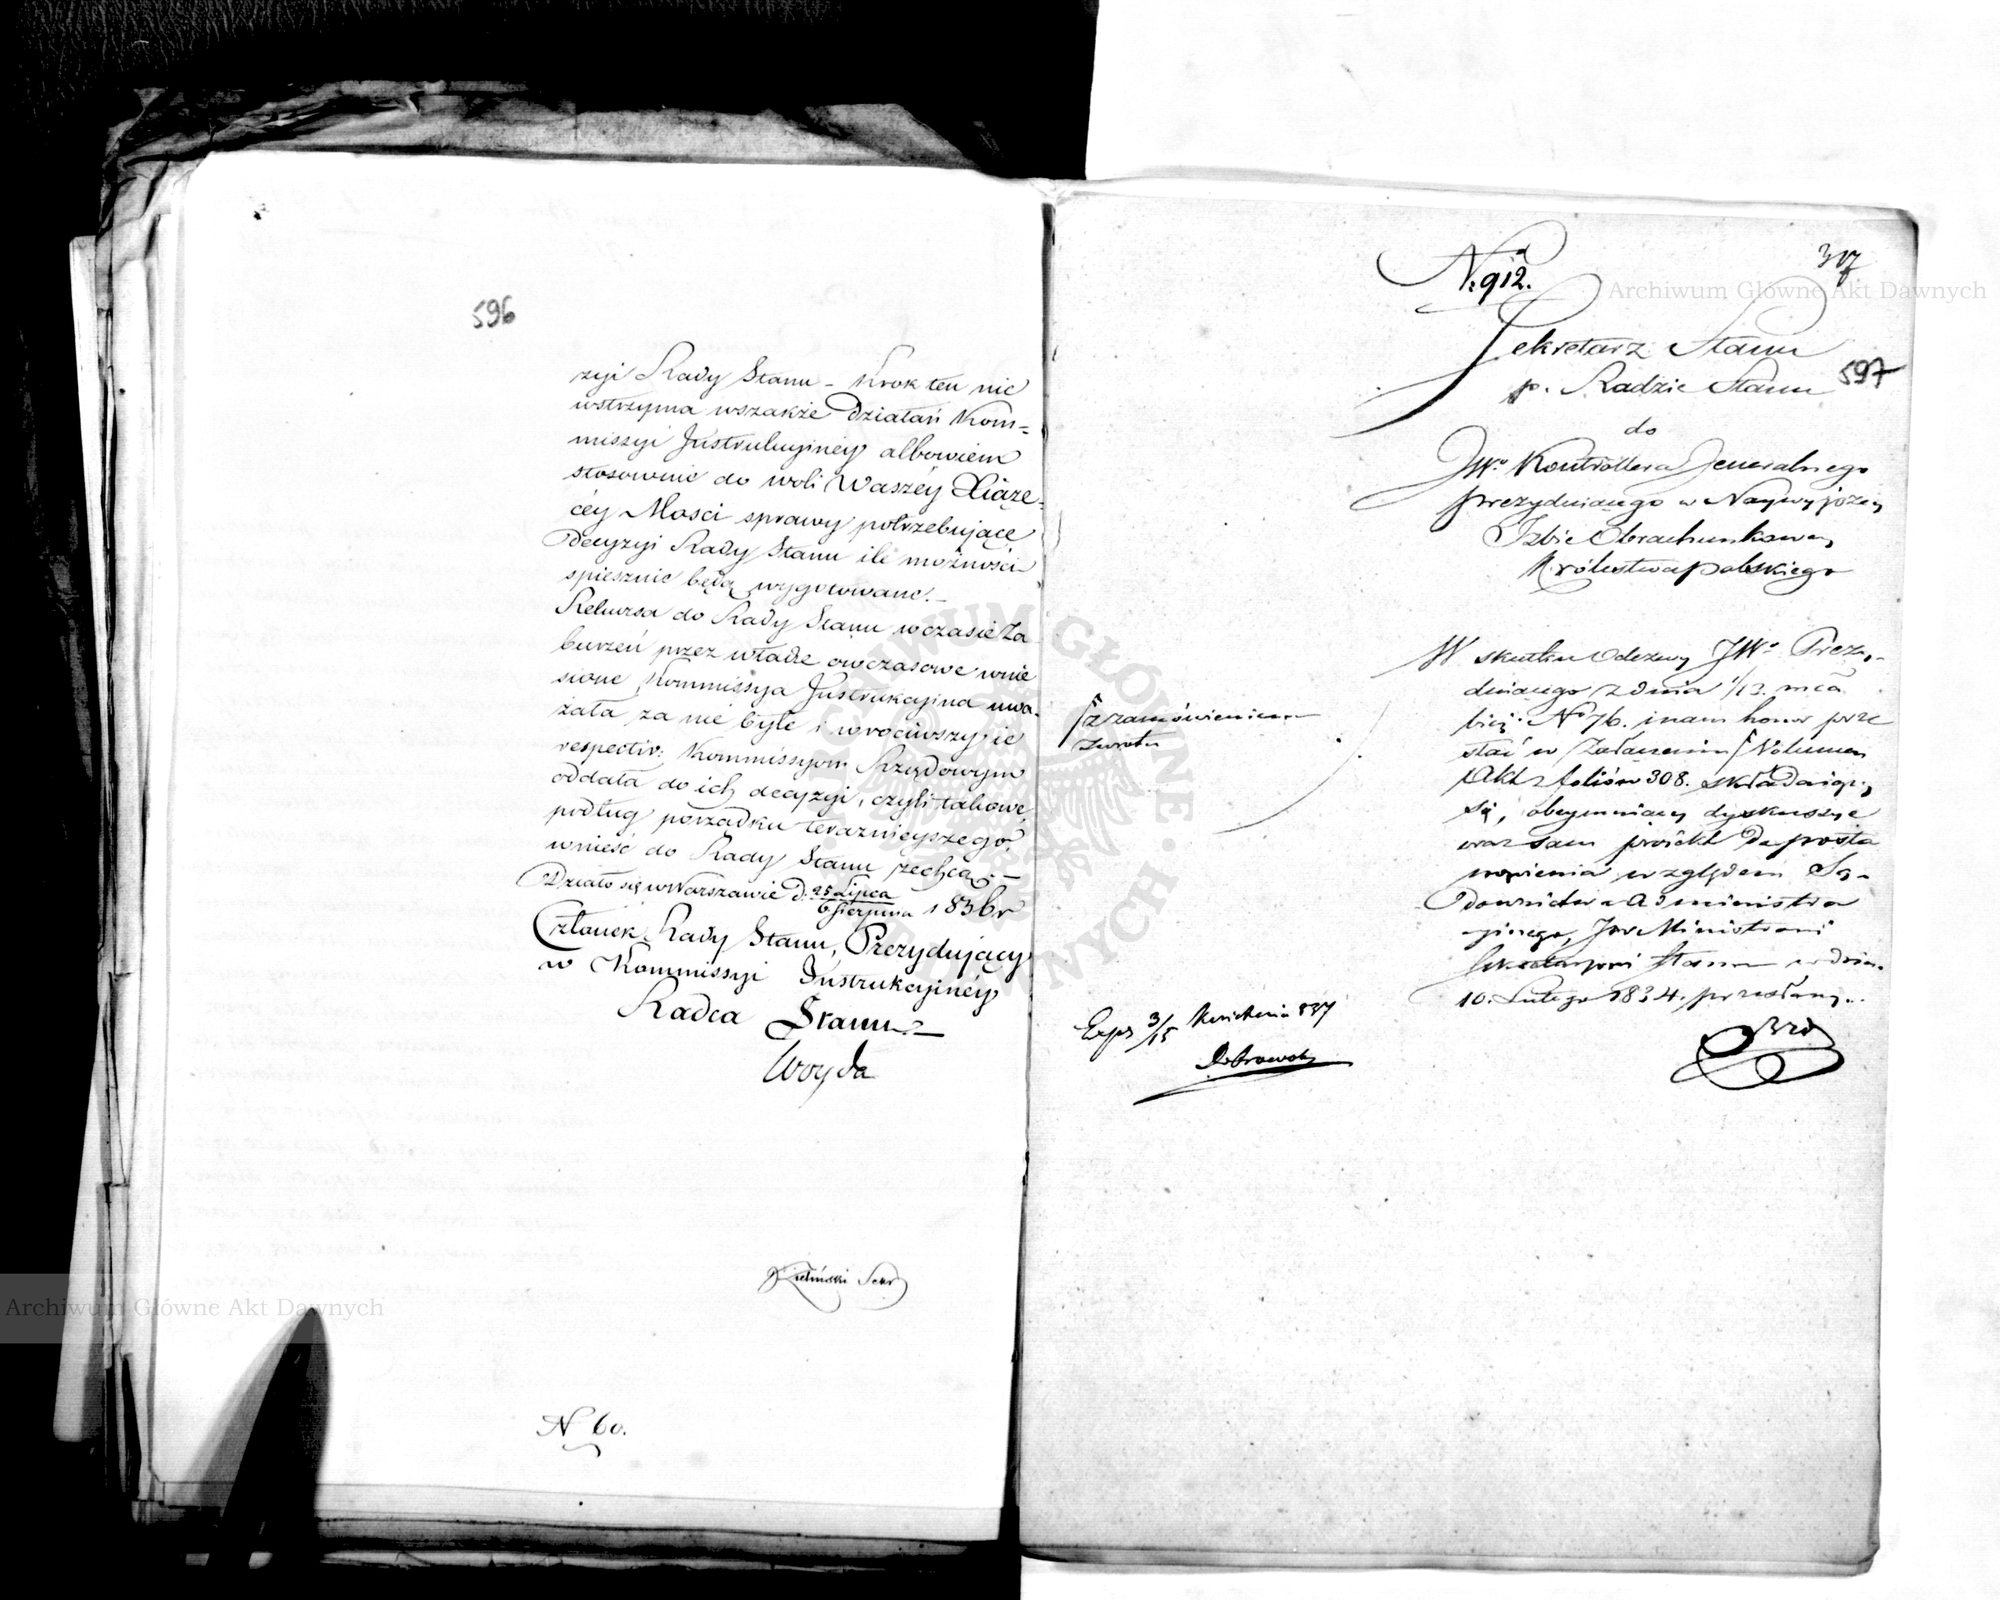 596
zyi Rady Stanu – Krok ten nie
wstrzyma wszakże Działań Kom=
missyi Instrukcyinéy albowiem
stosownie do woli Waszéy Xiążę-
céy Mosci sprawy potrzebujące
Decyzyi Rady Stanu ile możności
spiesznie będą wygotowane. –
Rekursa do Rady Stanu w czasie Za
burzeń przez władze owczasowe wnie
sione, Kommissya Instrukcyina uwa-
żała za nie byłe i wrociwszy ie
respectiv: Kommissyom Rządowym
oddała do ich decyzyi, czyli takowe,
podług porządku teraznieyszego
wnieść do Rady Stanu zechcą. –
Działo się w Warszawie d. 25 Lipca
6 Sierpnia 1836 r
Członek Rady Stanu, Prezydujący
w Kommissyi Instrukcyinéy
Radca Stanu
Woyda
Sekr
N 60.
307
N. 912.
Sekretarz Stanu
p. Radzie Stanu
597
do
JWo Kontrollera Jeneralnego
Prezyduiącego w Naywyższey
Izbie Obrachunkowey
Królestwa Polskiego
W skutku Odezwy JWo Prezy-
duiącego z dnia 1/13. m ca
bież: No 76. mam honor prze
słać w Załączeniu Volumen
Akt z foliów 308. składaiący
się, obeymuiący dyskussye
oraz sam proiekt Do posta
nowienia względem Są-
downictwa Administra
cyinego, Jwe Ministrowi
Sekretarzowi Stanu w dniu
10. Lutego 1834. przesłany.
z zamówieniem
zwrotu
Exp 3/15 Kwietnia 837
Dobrowolski